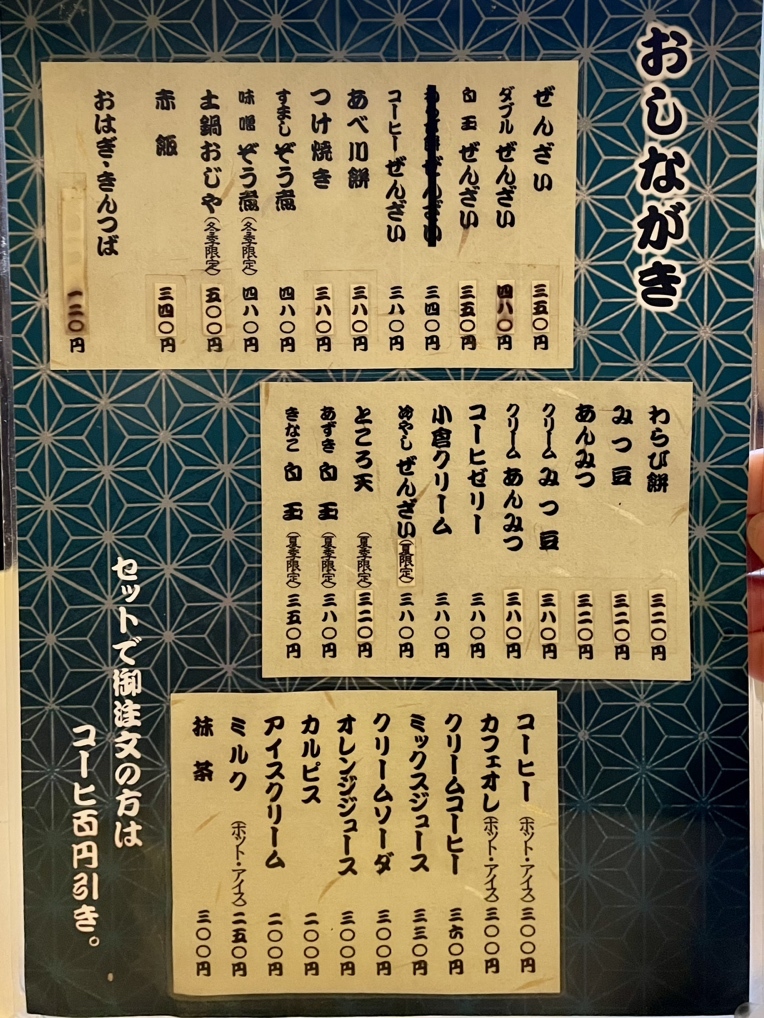 おしながき
ぜんざい 三五〇円
ダブルぜんざい 四八〇円
白玉ぜんざい 三五〇円
ぜんざい 三四〇円
コーヒーぜんざい 三八〇円
あべ川餅 三八〇円
つけ焼き 三八〇円
すましぞう煮 四八〇円
味噌ぞう煮(冬季限定) 四八〇円
土鍋おじや(冬季限定) 五〇〇円
赤飯 三四〇円
おはぎ・きんつば 一二〇円
わらび餅 三二〇円
みつ豆 三二〇円
あんみつ 三二〇円
クリームみつ豆 三八〇円
クリームあんみつ 三八〇円
コーヒゼリー 三八〇円
小倉クリーム 三八〇円
冷やしぜんざい(夏限定) 三八〇円
ところ天(夏季限定) 三二〇円
あずき白玉(夏季限定) 三八〇円
きなこ白玉(夏季限定) 三五〇円
コーヒー(ホット・アイス) 三〇〇円
カフェオレ(ホット・アイス) 三〇〇円
クリームコーヒー 三六〇円
ミックスジュース 三三〇円
クリームソーダ 三〇〇円
オレンジジュース 三〇〇円
カルピス 二〇〇円
アイスクリーム 二〇〇円
ミルク(ホット・アイス) 二五〇円
抹茶 三〇〇円
セットで御注文の方は
コーヒ百円引き。